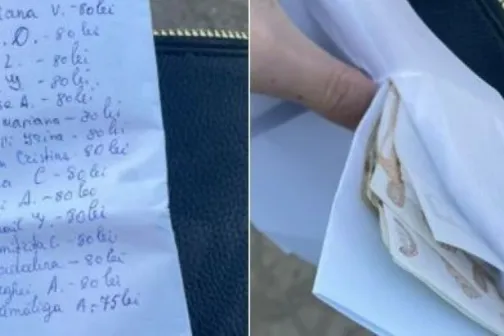 iana V. - 80 lei
O. - 80 lei
L. - 80 lei
Y - 80 lei
A. - 80 lei
Mariana - 80 lei
Irina - 80 lei
Cristina 80 lei
C - 80 lei
i A. - 80 lei
Y. - 80 lei
C - 80 lei
dalina - 80 lei
ghei A. - 80 lei
A. - 75 lei